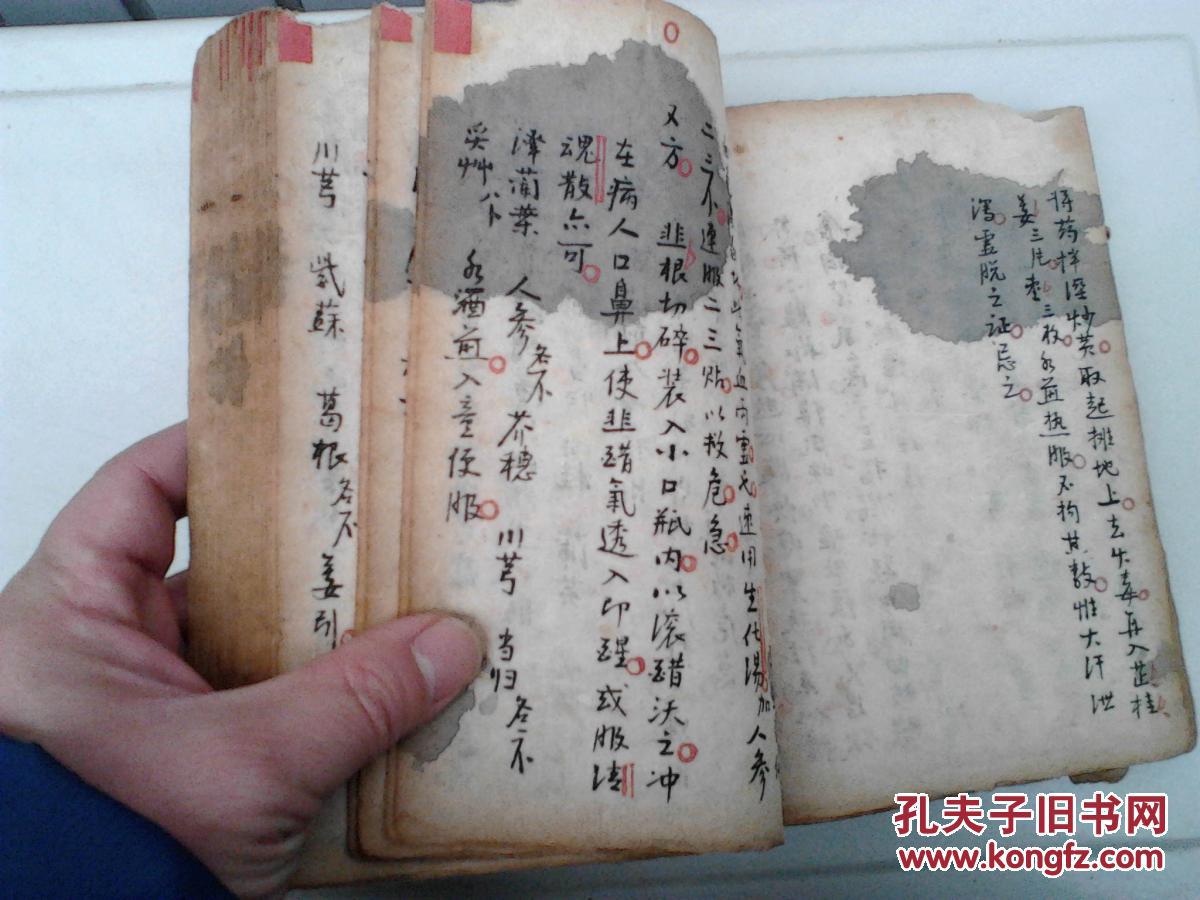 将药拌湿炒黄取起摊地上去火毒再入芷桂
姜三片枣三枚水煎热服不拘其数惟大汗泄
泻虚脱之证忌之
气血两虚也速用生化湯加人参
二三不連服二三贴以救危急
又方 韭根切碎装入小口瓶内以滚醋沃之冲
在病人口鼻上使韭醋氣透入印醒或服清
魂散亦可
澤蘭葉 人參各不 芥穗 川芎 当归各不
水酒煎入童便服
川芎 紫蘇 葛根各不姜引
孔夫子旧书网
www.kongfz.com